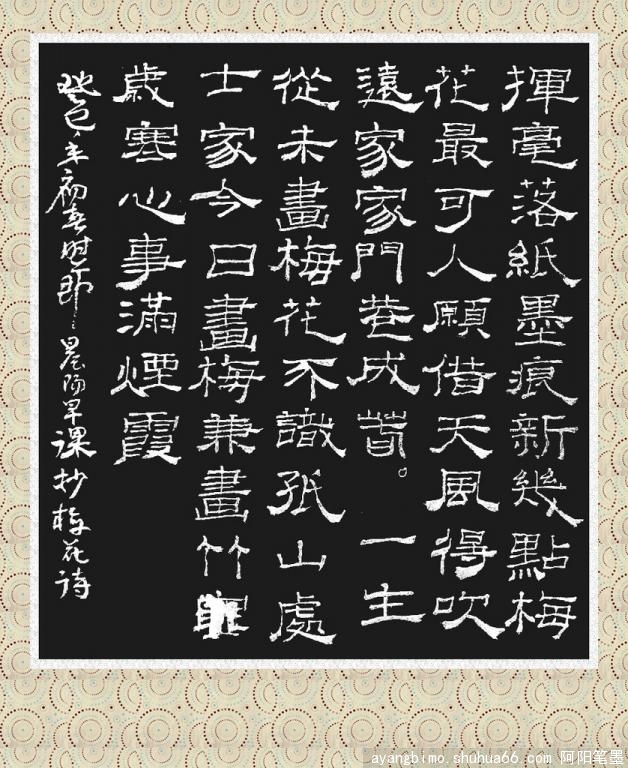 揮毫落紙墨痕新幾點梅
花最可人願借天風得吹
遠家家門巷成春。一生
從未畫梅花不識孤山處
士家今日畫梅兼畫竹
歲寒心事滿煙霞
癸巳年初春时即晨阳早课抄梅花诗
ayangbimo.shuhua66.com 阿阳笔墨